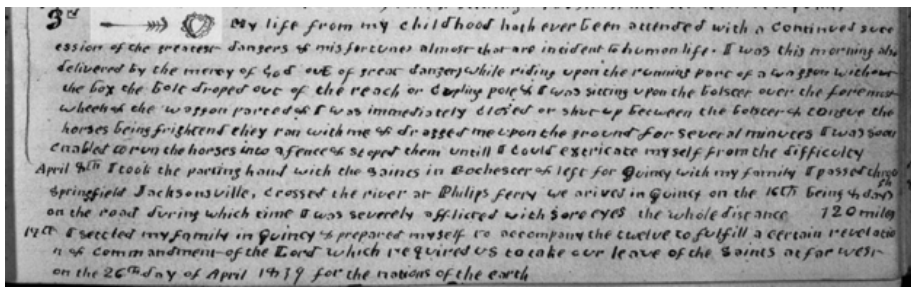 3rd My life from my childhood hath ever been attended with a continued succ
ession of the greatest dangers & misfortunes almost that are incident to human life. I was this morning also
delivered by the mercy of God out of great dangers while riding upon the running part of a waggon without
the box the bolt droped out of the reach or cupling pole & I was sitting upon the bolster over the foremost
wheels & the waggon parted & I was immediately closed or shut up between the bolster & tongue the
horses being frightend they ran with me & dragged me upon the ground for several minutes I was soon
enabled to run the horses into a fence & stoped them untill I could extricate myself from the difficulty
April 8th I took the parting hand with the saints in Rochester & left for Quincy with my family I passed throu
Springfield Jacksonville, crossed the river at Philips ferry we arived in Quincy on the 16th being 8 days
on the road during which time I was severely afflicted with sore eyes the whole distance 120 miles
17th I settled my family in Quincy & prepared myself to accompany the twelve to fulfill a certain revelatio
n & commandment of the Lord which required us to take our leave of the Saints at far west
on the 26th day of April 1839 for the nations of the earth